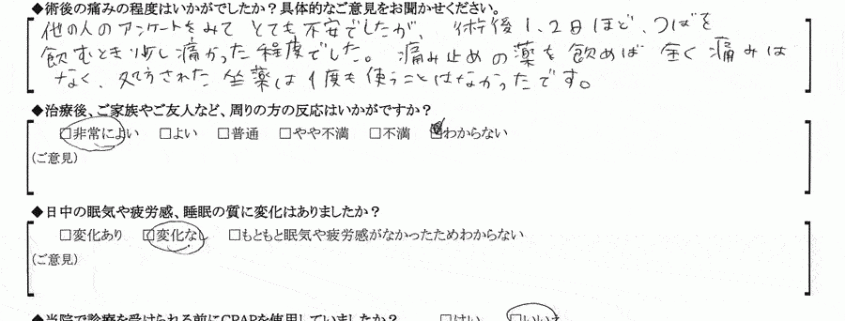 ◆術後の痛みの程度はいかがでしたか?具体的なご意見をお聞かせください。
他の人のアンケートをみて とても不安でしたが、術後1、2日ほど、つばを
飲むとき少し痛かった程度でした。痛み止めの薬を飲めば 全く痛みは
なく、処方された坐薬は1度も使うことはなかったです。
◆治療後、ご家族やご友人など、周りの方の反応はいかがですか?
□非常によい □よい □普通 □やや不満 □不満 ☑わからない
(ご意見)
◆日中の眠気や疲労感、睡眠の質に変化はありましたか?
□変化あり ☑変化なし □もともと眠気や疲労感がなかったためわからない
(ご意見)
◆当院で診療を受けられる前にCPAPを使用していましたか? □はい □いいえ